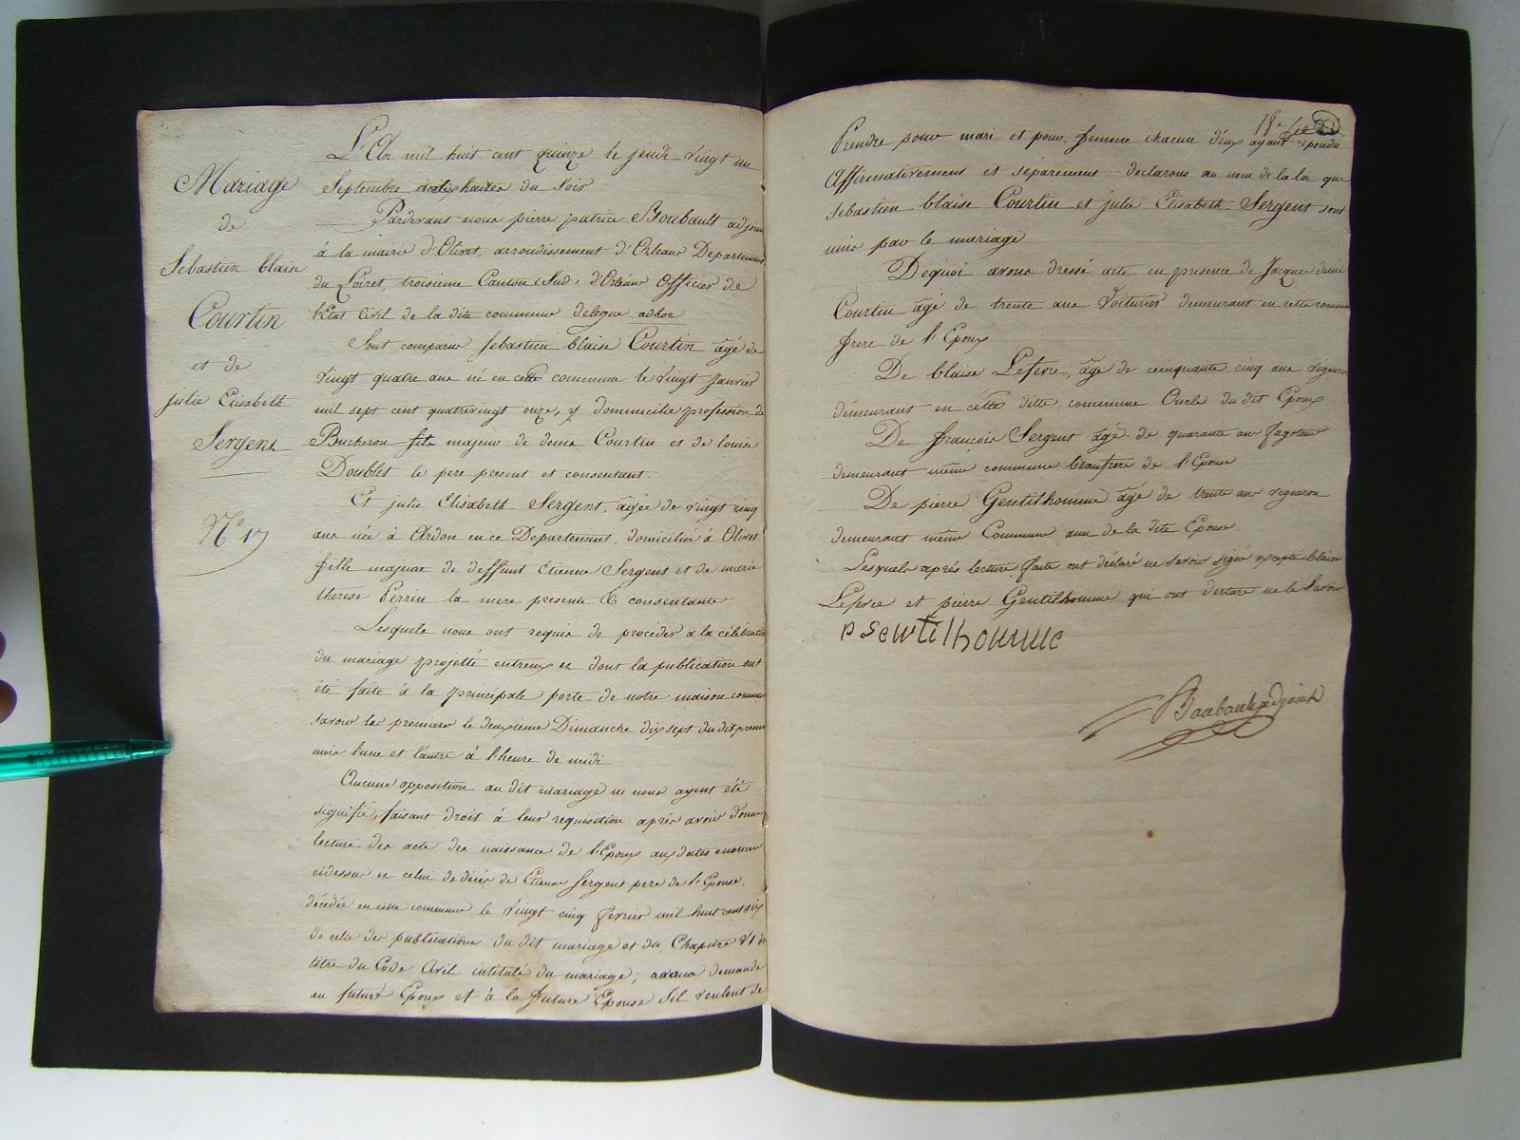 Mariage
de
Sebastien blaise
Courtin
et de
julie Elisabeth
Sergent
N° 17
L'An mil huit cent quinze le jeudi vingt un
Septembre heures du soir
Pardevant nous pierre patrice adjoint
à la mairie d'Olivet, arrondissement d'Orleans Departement
du Loiret, troisieme Canton (Sud) d'Orléans Officier de
l'Etat Civil de la dite commune delegue adhoc
Sont comparus sebastien blaise Courtin agé de
vingt quatre ans né en cette commune le vingt janvier
mil sept cent quatrevingt onze, y dommicilie profession de
Bucheron fils majeur de denis Courtin et de louise
Doublet le pere present et consentant.
Et julie Elisabeth Sergent, agée de vingt cinq
ans née à Ardon en ce Departement, domiciliée à Olivet
fille majeur de deffunt Etienne Sergent et de marie
therese Perrin la mere presente & consentante
Lesquels nous ont requis de proceder à la célébration
du mariage projetté entreux et dont la publication ont
été faite à la principale porte de notre maison commune
savoir le premier le deuxieme Dimanche dix sept du dit present
mois l'une et l'autre à l'heure de midi
Aucune opposition au dit mariage ne nous ayent été
signifié, faisant droit à leur requisition après avoir donné
lecture des acte des naissance de l'Epoux aux dattes
cidessus et celui de décès de Etienne Sergent pere de l'Epouse,
décédée en cette commune le vingt cinq fevrier mil huit cent six
de celui des publications du dit mariage et du Chapitre VI du
titre du Code Civil intitulé du mariage, avons demandé
au futur Epoux et à la future Epouse sil veulent se
18e
Prendre pour mari et pour femme chacun d'eux ayant repondu
Affirmativement et séparement declarons au nom de la loi que
sebastien blaise Courtin et julie Elisabeth Sergent sont
unis par le mariage
Dequoi avons dressé acte en presence de Jacques denis
Courtin agé de trente ans Voiturier demeurant en cette commune
frere de l'Epoux
De blaise Lefevre, agé de cinquante cinq ans vigneron
demeurant en cette ditte commune Oncle du dit Epoux
De françois Sergent agé de quarante ans
demeurant même commune beaufrere de l'Epouse
De pierre Gentilhomme agé de trente ans vigneron
demeurant même Commune ami de la dite Epouse
Lesquels après lecture faite ont déclaré ne savoir signé excepté blaise
Lefevre et pierre Gentilhomme qui ont declare ne le savoir
P Gentilhomme
adjoint